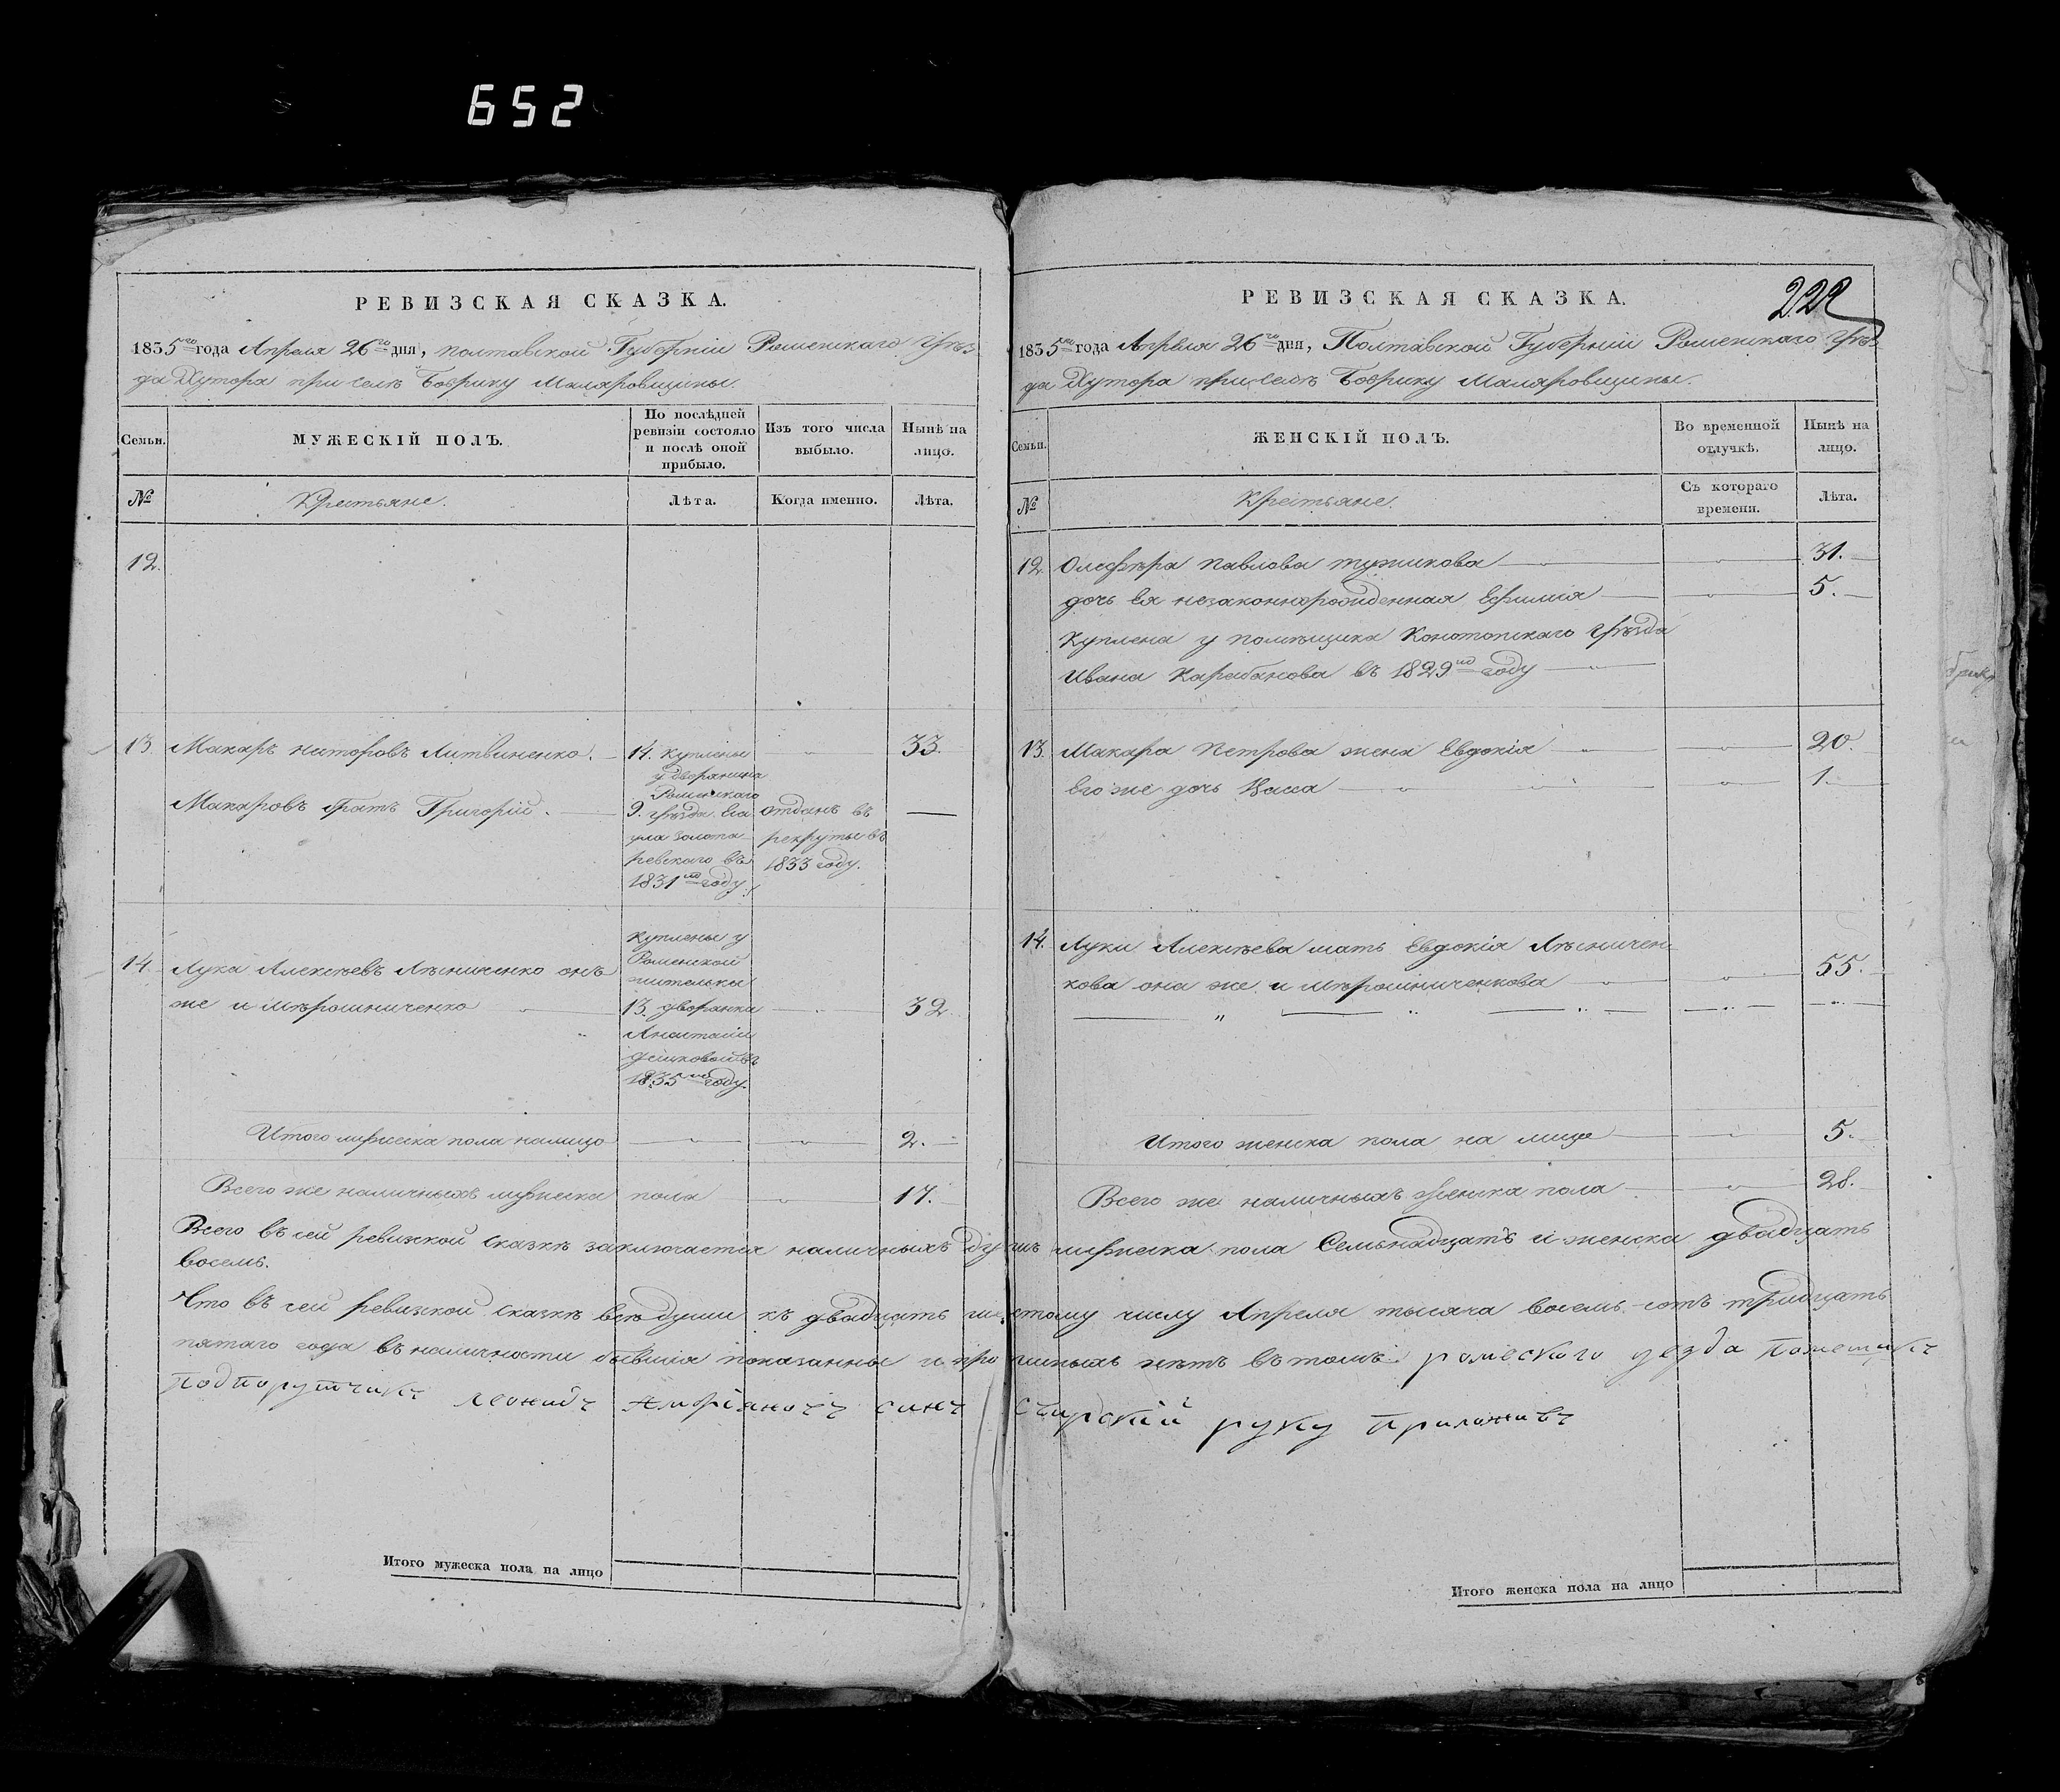 652
РЕВИЗСКАЯ СКАЗКА.
1835го года Апреля 26го дня, полтавской Губерніи Роменскаго Уѣз
да Хутора при селѣ Бобрику Маляровщины.
Семьи.
МУЖЕСКІЙ ПОЛЪ.
По послѣдней ревизіи состояло и послѣ оной прибыло.
Изъ того числа выбыло.
Нынѣ на лицо.
№
Крестьяне.
Лѣта.
Когда именно.
Лѣта.
12.
13. Макаръ Литвиненко. 33.
14. куплены
у дворянина
Роменскаго
Макаровъ братъ Григорій.
9. уѣзда
золота
ревскаго въ
1831мъ году
отданъ въ
рекруты въ
1833 году.
14. Лука Алексѣевъ Лѣсниченко онъ
же и Мѣрошниченко 32.
куплены у
Роменской
жительки
13. дворянки
Анастасіи
въ
1835мъ году.
Итого мужеска пола налицо 2.
Всего же наличныхъ мужеска пола 17.
РЕВИЗСКАЯ СКАЗКА.
222
1835го года Апреля 26го дня, Полтавской Губерніи Роменскаго Уѣз-
да Хутора при селѣ Бобрику Маляровщины.
Семьи.
ЖЕНСКІЙ ПОЛЪ.
Во временной отлучкѣ.
Нынѣ на лицо.
№
Крестьяне.
Съ котораго времени.
Лѣта.
12. Павлова 31.
дочь ея незаконнорожденная Ефимія 5.
Куплена у помѣщика Конотопскаго Уѣзда
Ивана Карабанова въ 1829мъ году
13. Макара Петрова жена Евдокія 20.
Его же дочь Васса 1.
14. Луки Алексѣева мать Евдокія Лѣсничен-
кова она же и Мѣрошниченкова 55.
Итого женска пола на лице 5.
Всего же наличныхъ женска пола 28.
Всего въ сей ревизкой сказкѣ заключается наличныхъ душъ мужеска пола Семьнадцать и женска двадцать
восемь.
Что въ сей ревизкой сказкѣ всѣ души къ двадцать шестому числу Апреля тысяча восемь-сотъ тридцать
пятаго года въ наличности бывшія показанны и прописныхъ нѣтъ въ томъ роменского уезда помещикъ
подпорутчикъ леонидъ синъ руку приложивъ
Итого мужеска пола на лицо
Итого женска пола на лицо